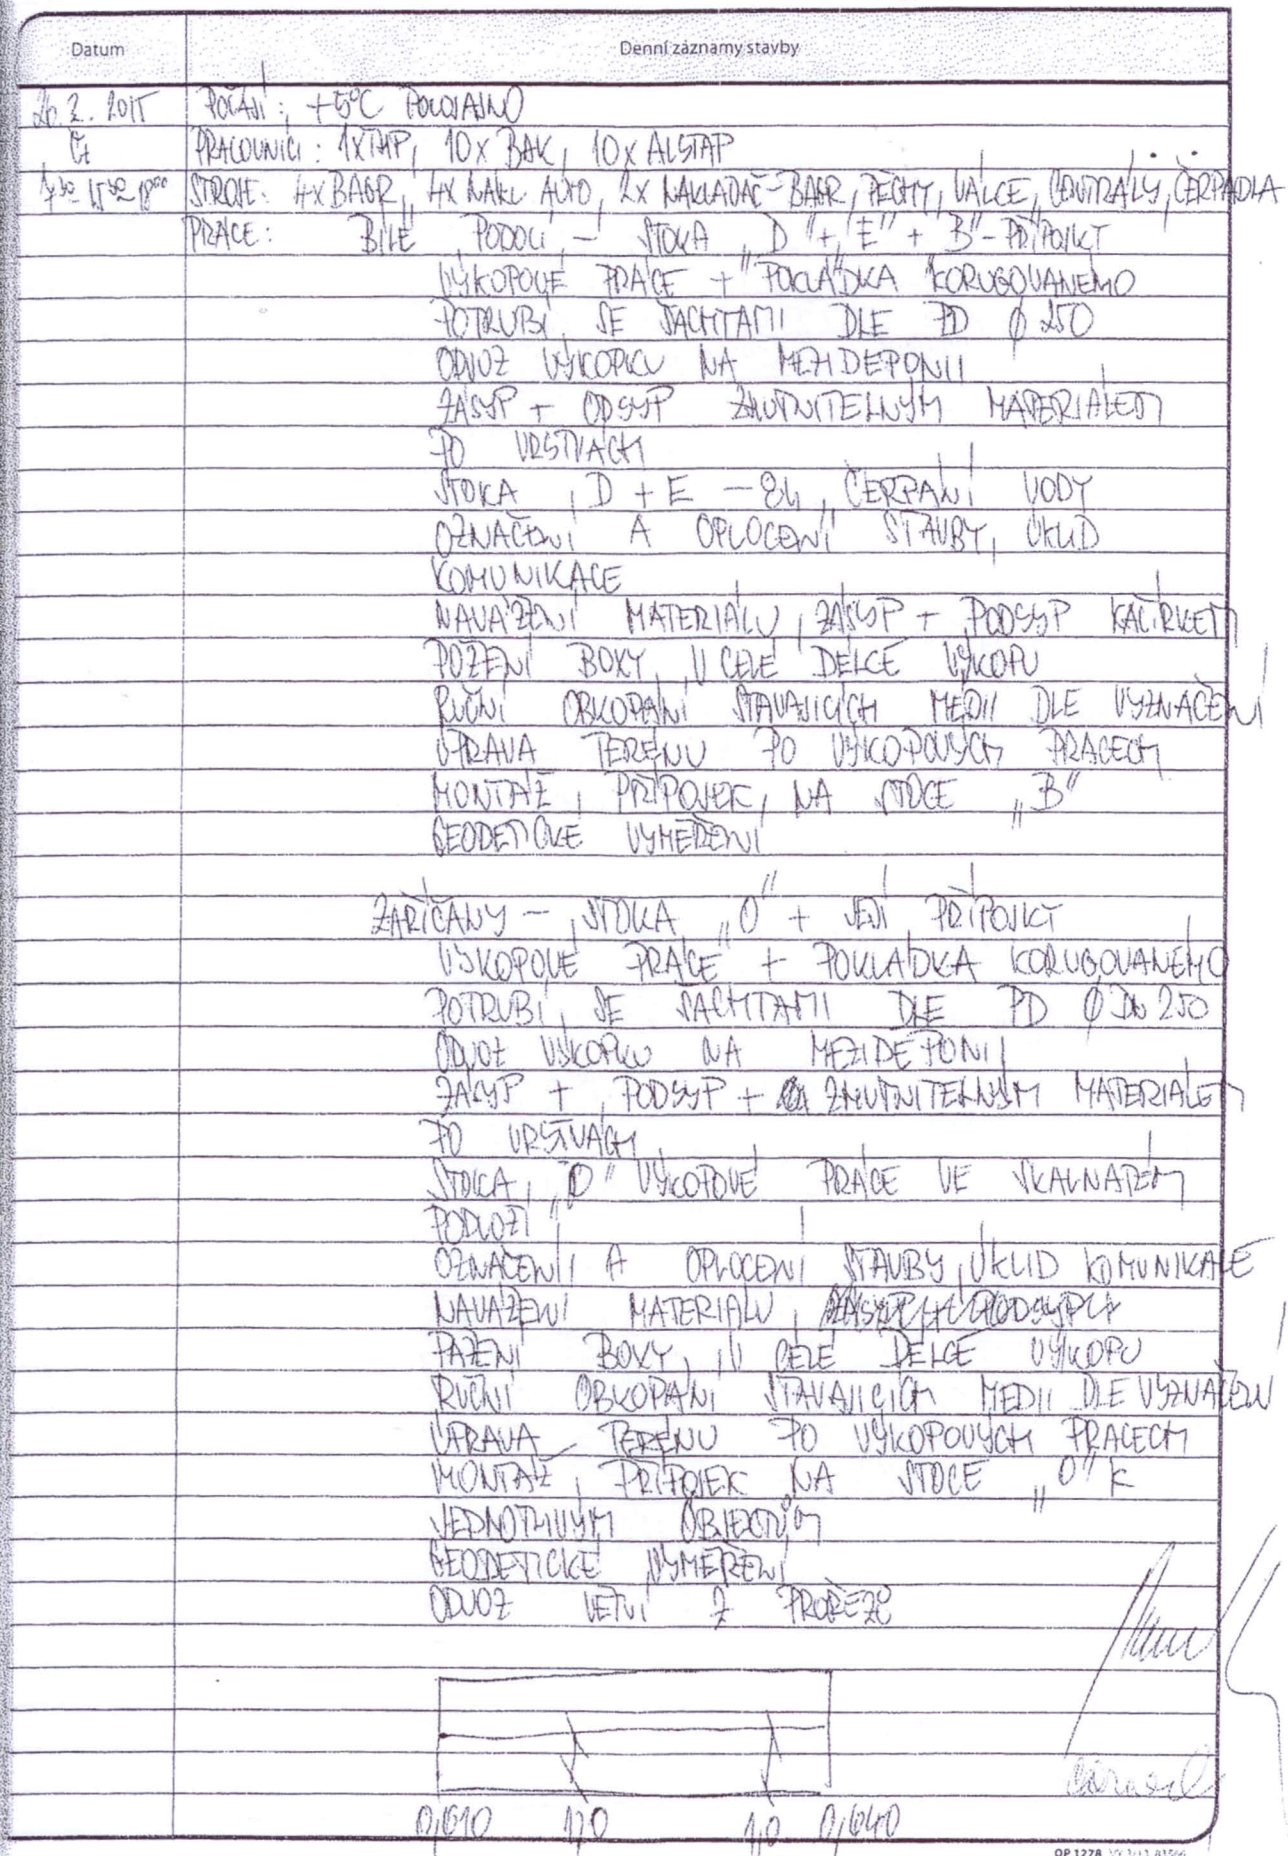 Datum Denní záznamy stavby
26. 2. 2015 POČASÍ: +5°C POLOJASNO
Čt PRACOVNÍCI: 1xTHP, 10x BAK, 10x ALSTAP
7³⁰ 18⁰⁰ STROJE: 4x BAGR, 4x NÁKL. AUTO, 2x NAKLADAČ-BAGR, PĚCHY, VÁLCE, CENTRÁLY, ČERPADLA
PRÁCE: BÍLÉ PODOLÍ - STOKA „D"+„E" + „B"-PŘÍPOJKY
VÝKOPOVÉ PRÁCE + POKLÁDKA KORUGOVANÉHO
POTRUBÍ SE ŠACHTAMI DLE PD Ø 250
ODVOZ VÝKOPKU NA MEZIDEPONII
ZÁSYP + ODSYP ZHUTNITELNÝM MATERIÁLEM
PO VRSTVÁCH
STOKA „D + E - 8h, ČERPÁNÍ VODY
OZNAČENÍ A OPLOCENÍ STAVBY, ÚKLID
KOMUNIKACE
NAVÁŽENÍ MATERIÁLU, ZÁSYP + PODSYP KAČÍRKEM
PAŽENÍ BOXY V CELÉ DÉLCE VÝKOPU
RUČNÍ OBKOPÁNÍ STÁVAJÍCÍCH MÉDIÍ DLE VYZNAČENÍ
ÚPRAVA TERÉNU PO VÝKOPOVÝCH PRACECH
MONTÁŽ PŘÍPOJEK NA STOCE „B"
GEODETICKÉ VYMĚŘENÍ
ZAŘÍČANY - STOKA „O" + JEJÍ PŘÍPOJKY
VÝKOPOVÉ PRÁCE + POKLÁDKA KORUGOVANÉHO
POTRUBÍ SE ŠACHTAMI DLE PD Ø DN 250
ODVOZ VÝKOPKU NA MEZIDEPONII
ZÁSYP + PODSYP + ZHUTNITELNÝM MATERIÁLEM
PO VRSTVÁCH
STOKA „O" VÝKOPOVÉ PRÁCE VE SKALNATÉM
PODLOŽÍ
OZNAČENÍ A OPLOCENÍ STAVBY, ÚKLID KOMUNIKACE
NAVÁŽENÍ MATERIÁLU, ZÁSYP + PODSYP
PAŽENÍ BOXY V CELÉ DÉLCE VÝKOPU
RUČNÍ OBKOPÁNÍ STÁVAJÍCÍCH MÉDIÍ DLE VYZNAČENÍ
ÚPRAVA TERÉNU PO VÝKOPOVÝCH PRACECH
MONTÁŽ PŘÍPOJEK NA STOCE „O" K
JEDNOTLIVÝM OBJEKTŮM
GEODETICKÉ VYMĚŘENÍ
ODVOZ VĚTVÍ Z PROŘEZŮ
0,610 1,0 1,0 0,640
OP 1278